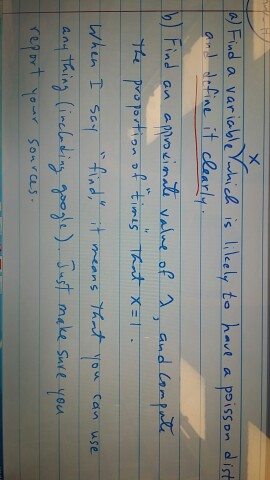 X
a) Find a variable which is likely to have a poisson dist
and define it clearly.
b) Find an approximate value of λ, and compute
the proportion of "times" that X=1.
When I say "find," it means that you can use
any thing (including google). Just make sure you
report your sources.